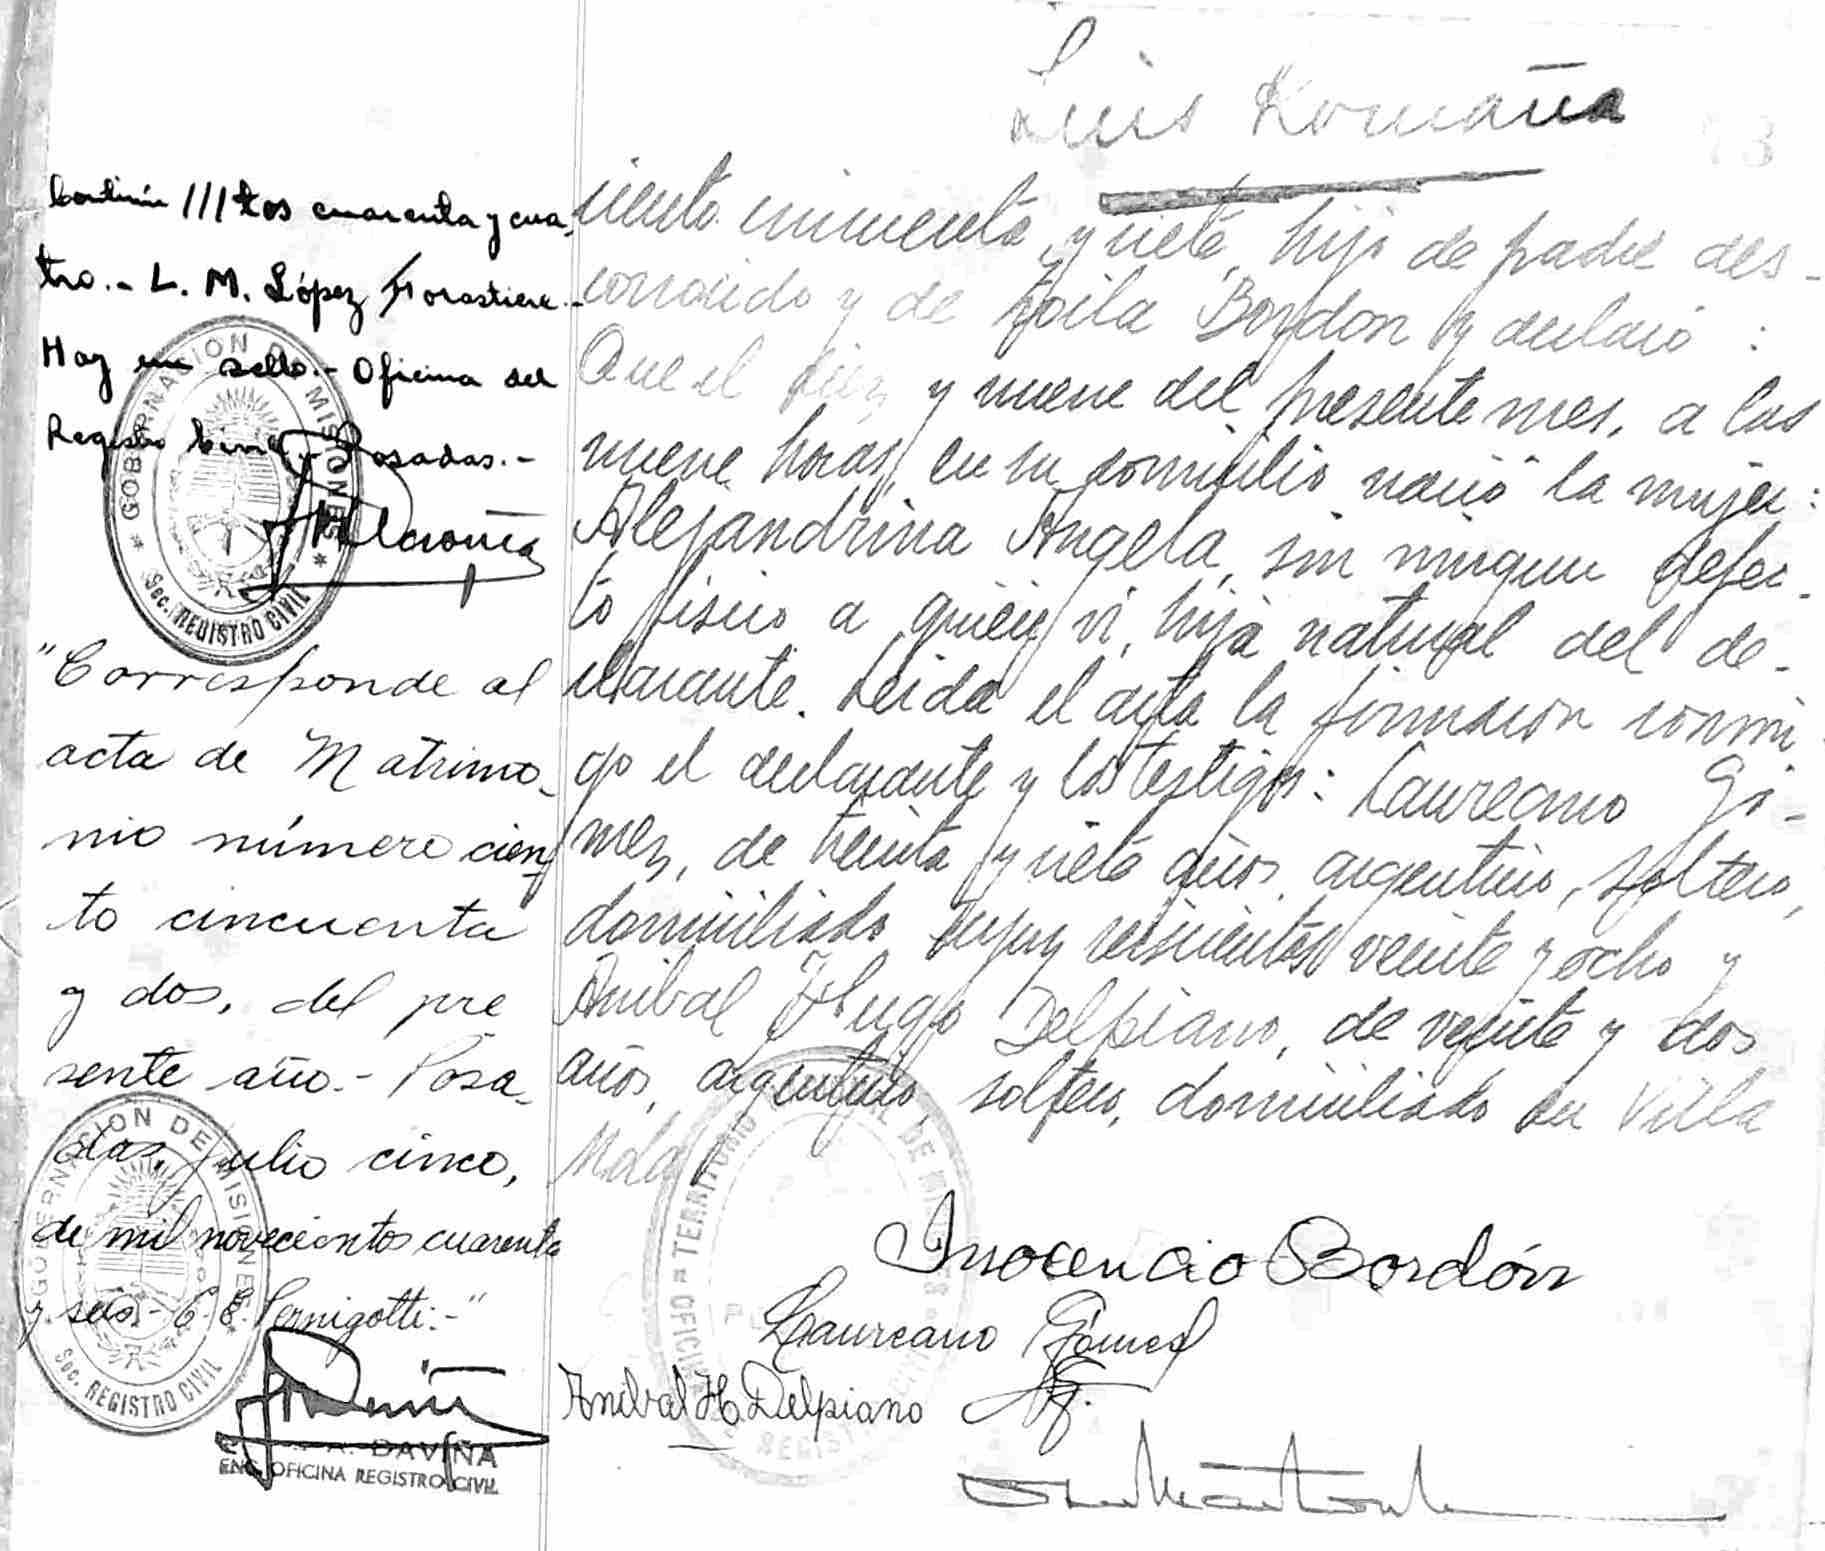 Luis Romaña
Continúa ///tos cuarenta y cua-
tro.- L. M. López Forastiere.-
Hay un sello.- Oficina del
Registro Civil.- Posadas.-
GOBERNACION DE MISIONES
Sec. REGISTRO CIVIL
"Corresponde al
acta de Matrimo-
nio número cien-
to cincuenta
y dos, del pre
sente año.- Posa-
das, julio cinco,
de mil novecientos cuarenta
y seis.- C. E. Pernigotti.-"
GOBERNACION DE MISIONES
Sec. REGISTRO CIVIL
DAVIÑA
ENC. OFICINA REGISTRO CIVIL
ciento cincuenta y siete, hijo de padre des-
conocido y de Zoila Bordon y declaró:
Que el diez y nueve del presente mes, a las
nueve horas, en su domicilio nació la mujer:
Alejandrina Angela, sin ningun defec-
to físico a quien vi, hija natural del de-
clarante. Leida el acta la firmaron conmi
go el declarante y los testigos: Laureano Gó-
mez, de treinta y siete años, argentino, soltero,
domiciliado Jujuy seiscientos veinte y ocho y
Anibal Hugo Delpiano, de veinte y dos
años, argentino, soltero, domiciliado en Villa
Inocencio Bordón
Laureano Gómez
Anibal H. Delpiano